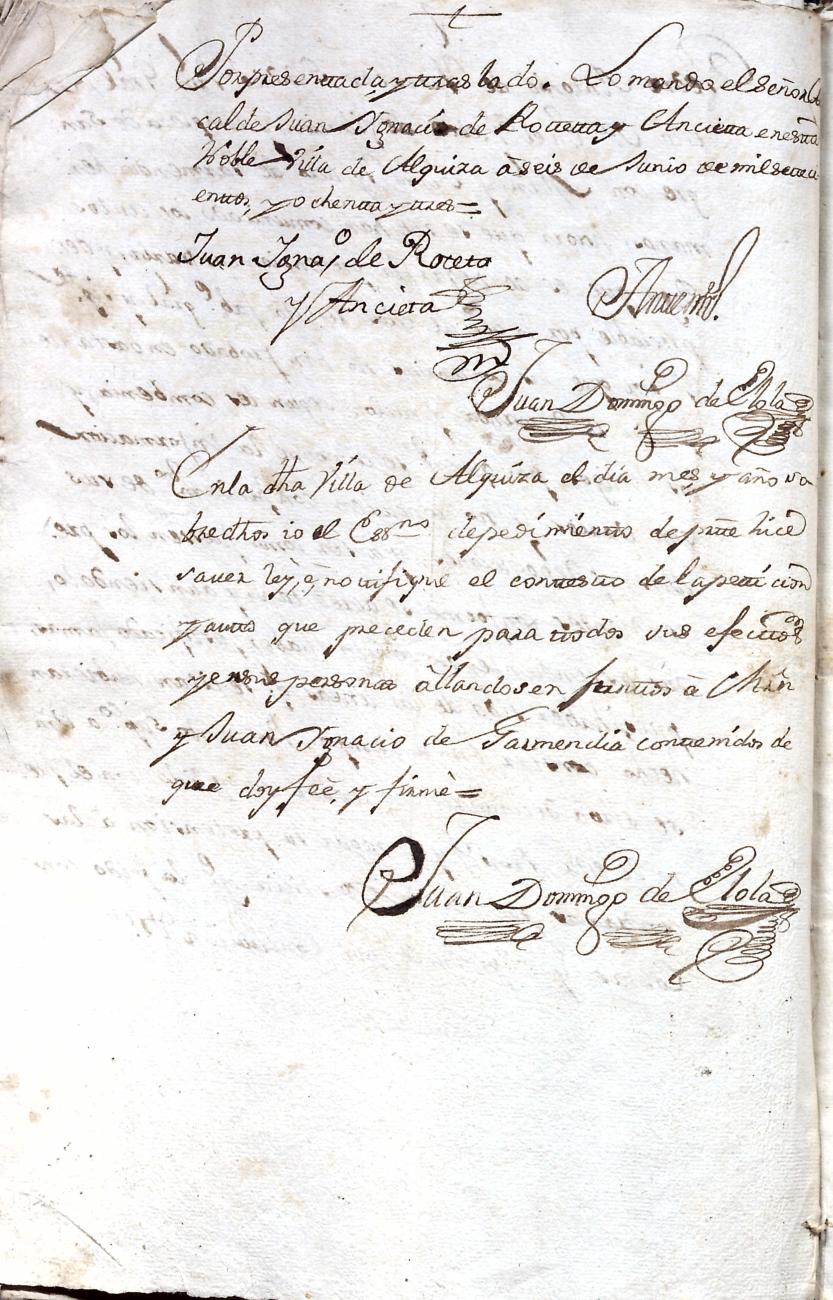 Por presentada, y traslado. Lo mando el señor Al
calde Juan Ignacio de Rottetta y Ancietta en esta
Noble Villa de Alquiza â seis de Junio de mil sette ci
enttos, y ochentta y tres=
Juan Igna.º de Roteta
y Ancieta
Antte mi.
Juan Domingo de Elola
En la dha Villa de Alquiza el dia mes, y año so
bredhos io el Essno de pedimiento de ptte hice
saver ley, è, nottifiquè el contesto de la petticion
y autto que preceden para ttodos sus efecttos
y en sus personas âllandosen junttos â Mrn
y Juan Ignacio de Garmendia conttenidos de
que doy feè, y firmè=
Juan Domingo de Elola